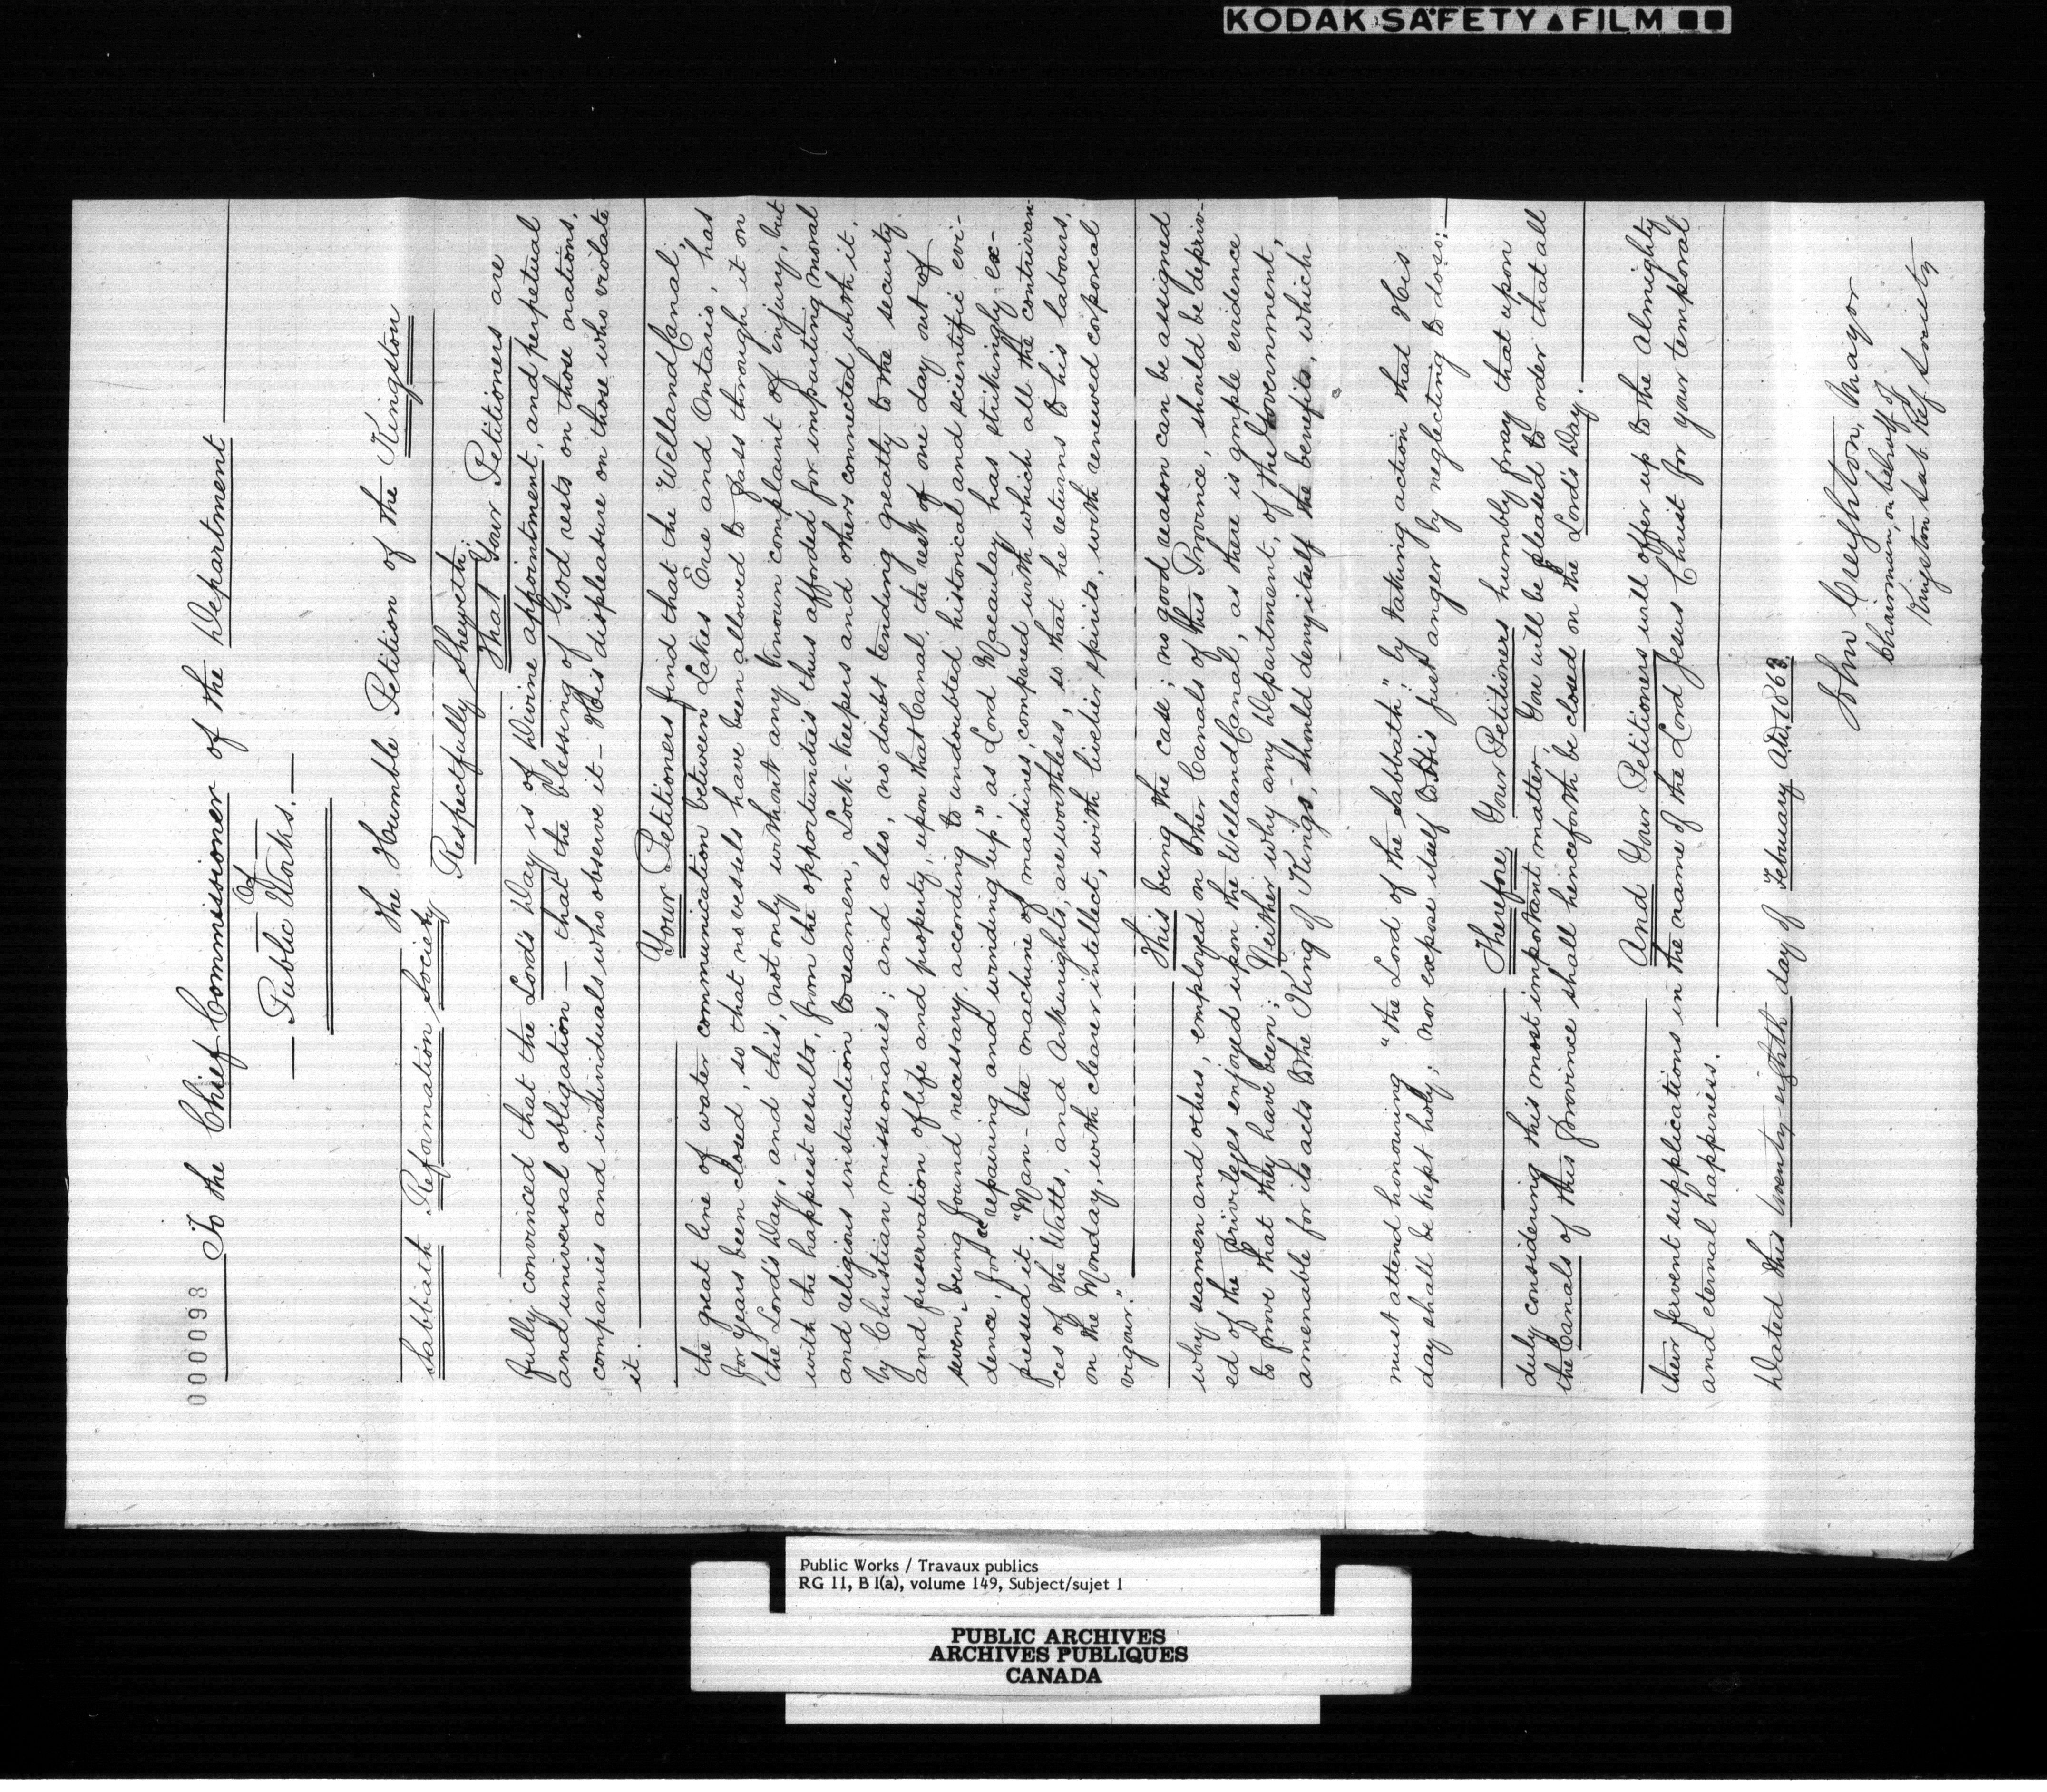 KODAK SAFETY FILM
000098
To the Chief Commissioner of the Department
of
Public Works.
The Humble Petition of the Kingston
Sabbath Reformation Society
Respectfully Sheweth:
That Your Petitioners are
fully convinced that the Lord's Day is of Divine appointment, and perpetual
and universal obligation — that the blessing of God rests on those nations,
companies and individuals who observe it — His displeasure on those who violate
it.
Your Petitioners find that the Welland Canal,
the great line of water communication between Lakes Erie and Ontario, has
for years been closed, so that no vessels have been allowed to pass through it on
the Lord's Day, and this, not only without any known complaint of injury, but
with the happiest results, from the opportunities thus afforded for imparting moral
and religious instruction to seamen, Lock-keepers and others connected with it,
by Christian missionaries; and also, no doubt tending greatly to the security
and preservation of life and property, upon that Canal, the rest of one day out of
seven being found necessary, according to undoubted historical and scientific evi-
dence, for "repairing and winding up," as Lord Macaulay has strikingly ex-
pressed it, "Man - the machine of machines, compared with which all the contrivan-
ces of the Watts, and Arkwrights, are worthless, so that he returns to his labours,
on the Monday, with clearer intellect, with livelier spirits, with renewed corporeal
vigour."
This being the case; no good reason can be assigned
why seamen and others, employed on other Canals of this Province, should be depriv-
ed of the privileges enjoyed upon the Welland Canal, as there is ample evidence
to prove that they have been; Neither why any Department, of the Government,
amenable for its acts to the King of Kings, should deny itself the benefits, which
must attend honouring "the Lord of the Sabbath" by taking action that His
day shall be kept holy; nor expose itself to His just anger by neglecting to do so:
Therefore Your Petitioners humbly pray that upon
duly considering this most important matter, You will be pleased to order that all
the Canals of this province shall henceforth be closed on the Lord's Day.
And Your Petitioners will offer up to the Almighty
their fervent supplications in the name of the Lord Jesus Christ for your temporal
and eternal happiness.
Dated this twenty-eighth day of February A.D. 1863.
John Creighton, Mayor
Chairman, on behalf of
Kingston Sab. Ref. Society
Public Works / Travaux publics
RG 11, B 1(a), volume 149, Subject/sujet 1
PUBLIC ARCHIVES
ARCHIVES PUBLIQUES
CANADA